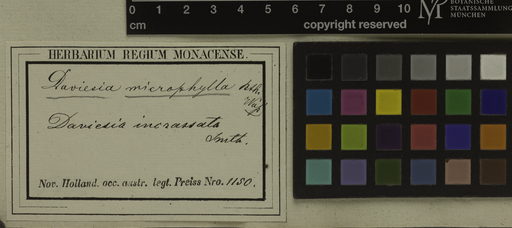 0 1 2 3 4 5 6 7 8 9 10
cm
copyright reserved
BOTANISCHE
STAATSSAMMLUNG
MÜNCHEN
HERBARIUM REGIUM MONACENSE.
Daviesia microphylla Bth.
Daviesia incrassata
Smth.
Nov. Holland. occ. austr. legt. Preiss Nro. 1180.